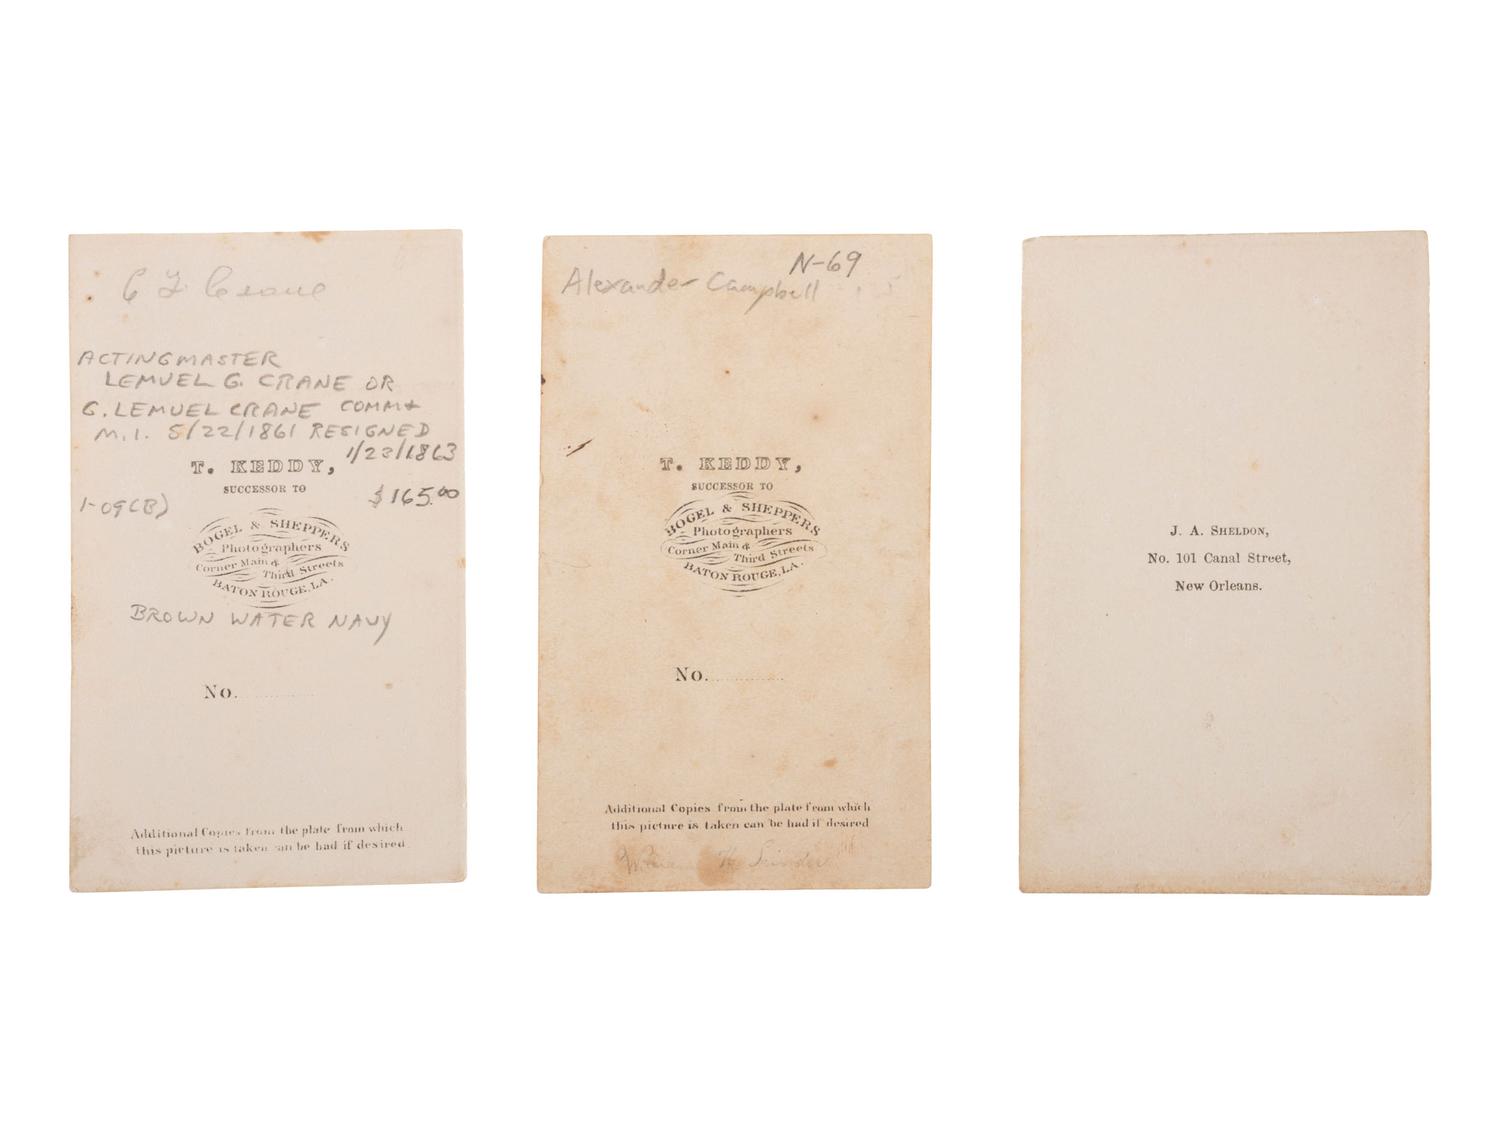 Crane
ACTING MASTER
LEMUEL G. CRANE OR
G. LEMUEL CRANE COMM+
M.I. 5/22/1861 RESIGNED
1/23/1863
T. KEDDY,
SUCCESSOR TO
1-09(B)
$165.00
BOGEL & SHEPPERS
Photographers
Corner Main &
Third Streets
BATON ROUGE, LA.
BROWN WATER NAVY
No.
Additional Copies from the plate from which
this picture is taken can be had if desired.
N-69
Alexander Campbell
T. KEDDY,
SUCCESSOR TO
BOGEL & SHEPPERS
Photographers
Corner Main &
Third Streets
BATON ROUGE, LA.
No.
Additional Copies from the plate from which
this picture is taken can be had if desired
J. A. SHELDON,
No. 101 Canal Street,
New Orleans.